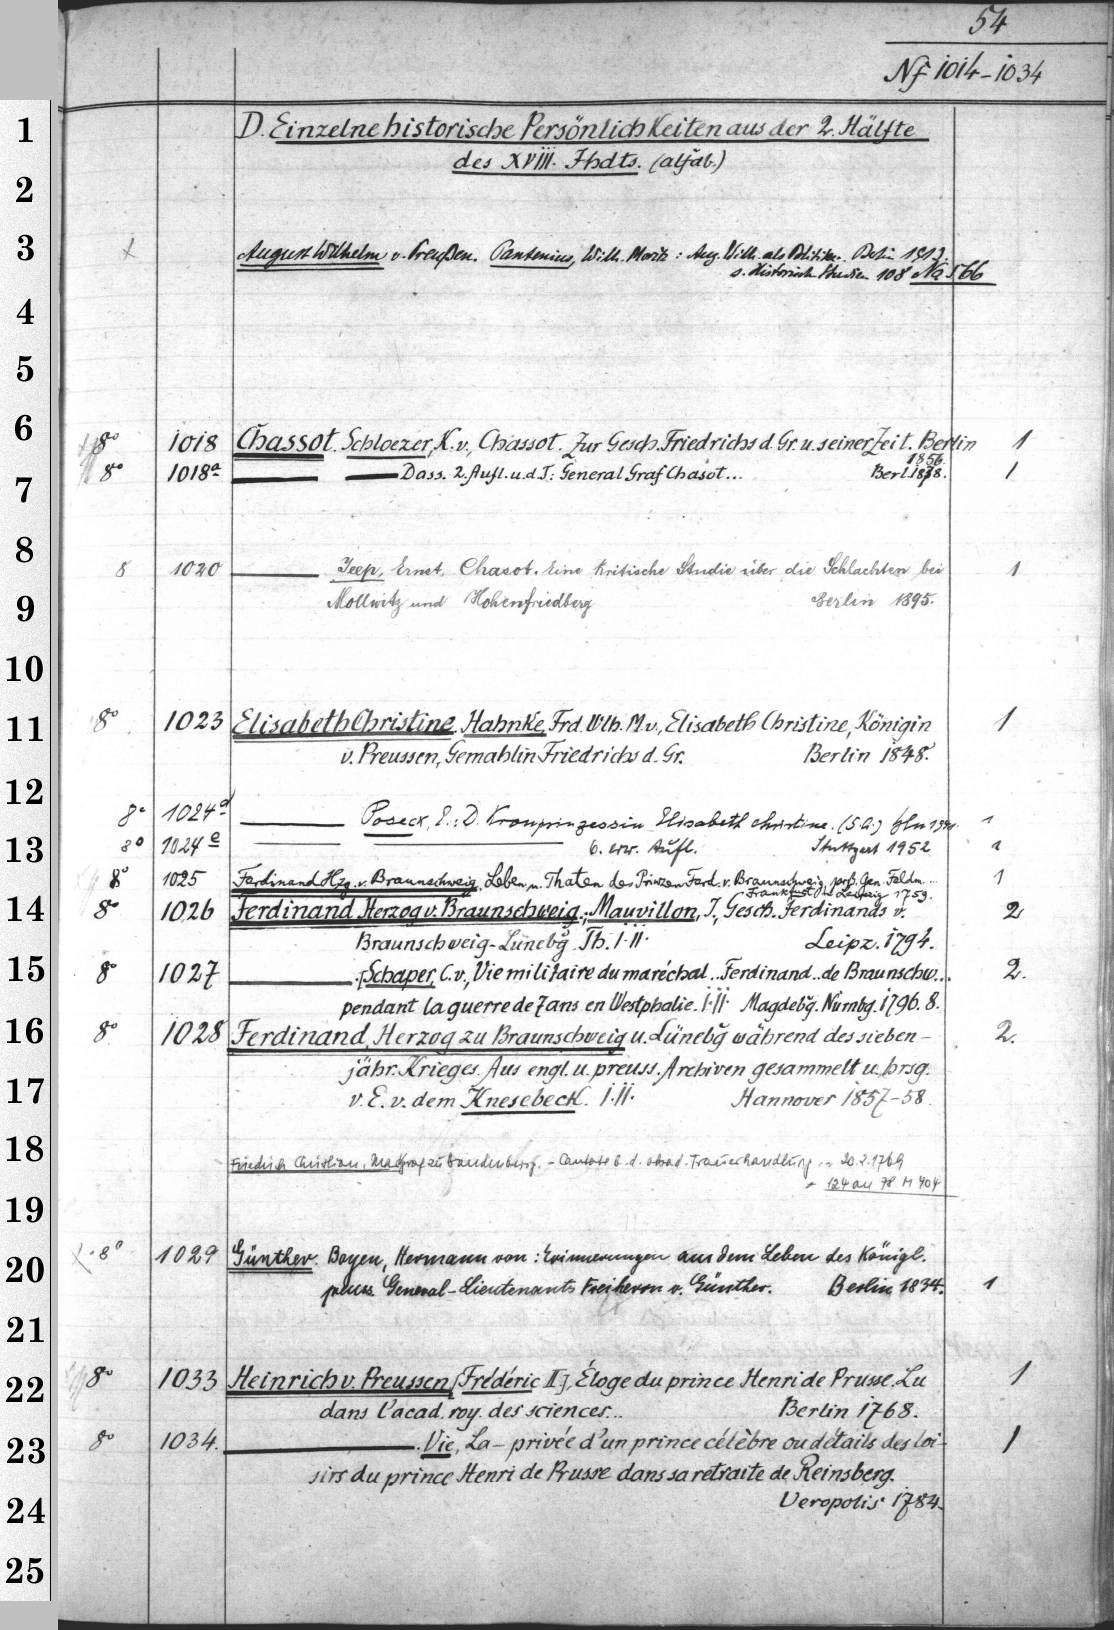 54
Nf 1014-1034
1
D. Einzelne historische Persönlichkeiten aus der 2. Hälfte
2
des XVIII. Jhdts. (alfab.)
3
August Wilhelm v. Preußen. Pantenius, Wilh. Moritz: Aug. Wilh. als Politiker. Berlin 1913.
s. Historische Studien 108 Na 566
4
5
6
8° 1018 Chassot. Schloezer, K. v., Chassot. Zur Gesch. Friedrichs d. Gr. u. seiner Zeit. Berlin 1
1856.
7
8° 1018a Dass. 2. Aufl. u. d. T: General Graf Chasot... Berl. 1878. 1
8
8 1020 Jeep, Ernst. Chasot. Eine kritische Studie über die Schlachten bei 1
9
Mollwitz und Hohenfriedberg Berlin 1895.
10
11
8° 1023 Elisabeth Christine. Hahnke, Frd. Wlh. M. v., Elisabeth Christine, Königin 1
v. Preussen, Gemahlin Friedrichs d. Gr. Berlin 1848.
12
8° 1024d Poseck, E.: D. Kronprinzessin Elisabeth Christine. (5. A.) 1
13
8° 1024e 6. erw. Aufl. Stuttgart 1952 1
8° 1025 Ferdinand Hzg. v. Braunschweig, Leben u. Thaten des Prinzen Ferd. v. Braunschweig, preß. Gen. Feldm... 1
Frankfurt u. Leipzig 1759.
14
8° 1026 Ferdinand Herzog v. Braunschweig.; Mauvillon, J., Gesch. Ferdinands v. 2
Braunschweig-Lünebg. Th. I.II. Leipz. 1794.
15
8° 1027 [Schaper, C. v., Vie militaire du maréchal.. Ferdinand.. de Braunschw... 2.
pendant la guerre de 7 ans en Westphalie. I.II. Magdebg. Nürnbg. 1796. 8.
16
8° 1028 Ferdinand, Herzog zu Braunschweig u. Lünebg während des sieben- 2.
jähr. Krieges. Aus engl. u. preuss. Archiven gesammelt u. hrsg.
17
v. E. v. dem Knesebeck. I.II. Hannover 1857-58.
18
Friedrich Christian, Markgraf zu Brandenburg. - Cantate b. d. akad. Trauerhandlung 20.2.1769
124 an 78 M 404
19
20
8° 1029 Günther. Boyen, Hermann von: Erinnerungen aus dem Leben des Königl.
preuss. General-Lieutenants Freiherrn v. Günther. Berlin 1834. 1
21
22
8° 1033 Heinrich v. Preussen, [Frédéric II], Éloge du prince Henri de Prusse. Lu 1
dans l'acad. roy. des sciences... Berlin 1768.
23
8° 1034. Vie, La - privée d'un prince célèbre ou détails des loi- 1
sirs du prince Henri de Prusse dans sa retraite de Reinsberg.
24
Veropolis 1784.
25